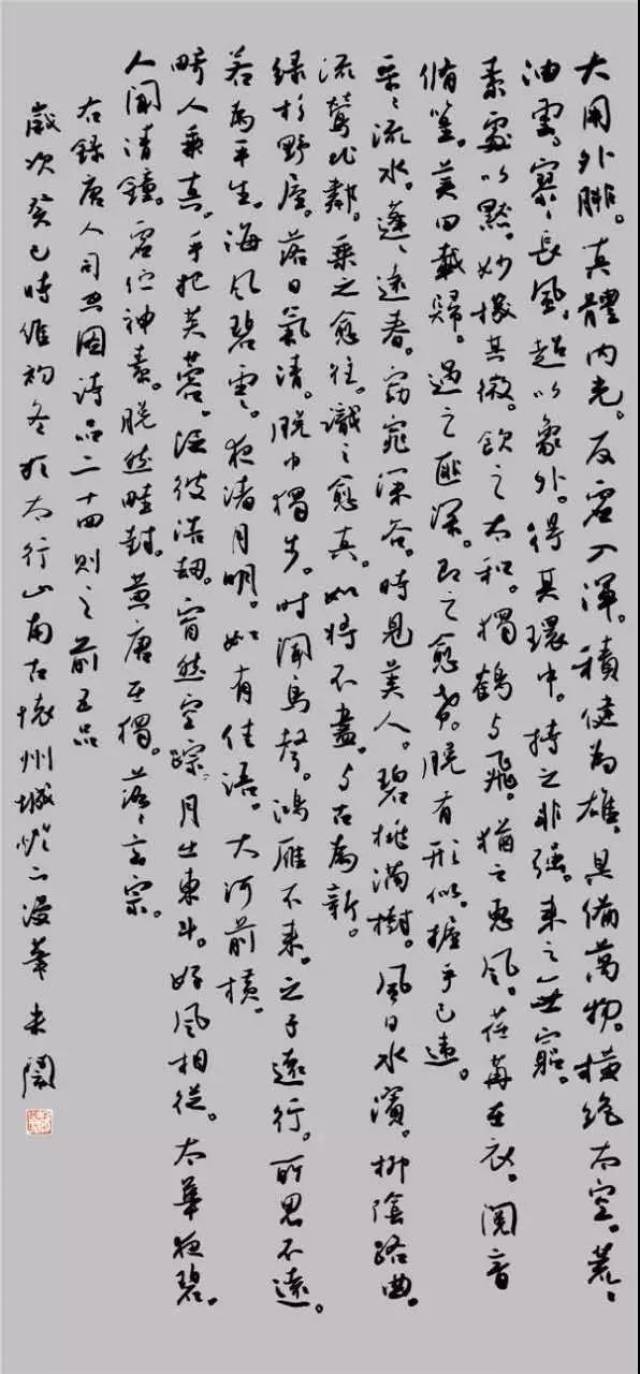 大用外腓。真體內充。反虛入渾。積健為雄。具備萬物。橫絕太空。荒〻
油雲。寥〻長風。超以象外。得其環中。持之非強。來之無窮。
素處以默。妙機其微。飲之太和。獨鶴與飛。猶之惠風。荏苒在衣。閱音
脩篁。美曰載歸。遇之匪深。即之愈希。脫有形似。握手已違。
采〻流水。蓬〻遠春。窈窕深谷。時見美人。碧桃滿樹。風日水濱。柳陰路曲。
流鶯比鄰。乘之愈往。識之愈真。如將不盡。與古為新。
綠杉野屋。落日氣清。脫巾獨步。時聞鳥聲。鴻雁不來。之子遠行。所思不遠。
若為平生。海風碧雲。夜渚月明。如有佳語。大河前橫。
畸人乘真。手把芙蓉。泛彼浩劫。窅然空蹤。月出東斗。好風相從。太華夜碧。
人聞清鐘。虛佇神素。脫然畦封。黃唐在獨。落〻玄宗。
右錄唐人司空圖诗品二十四則之前五品
歲次癸巳時維初冬於太行山南古懷州城漫筆